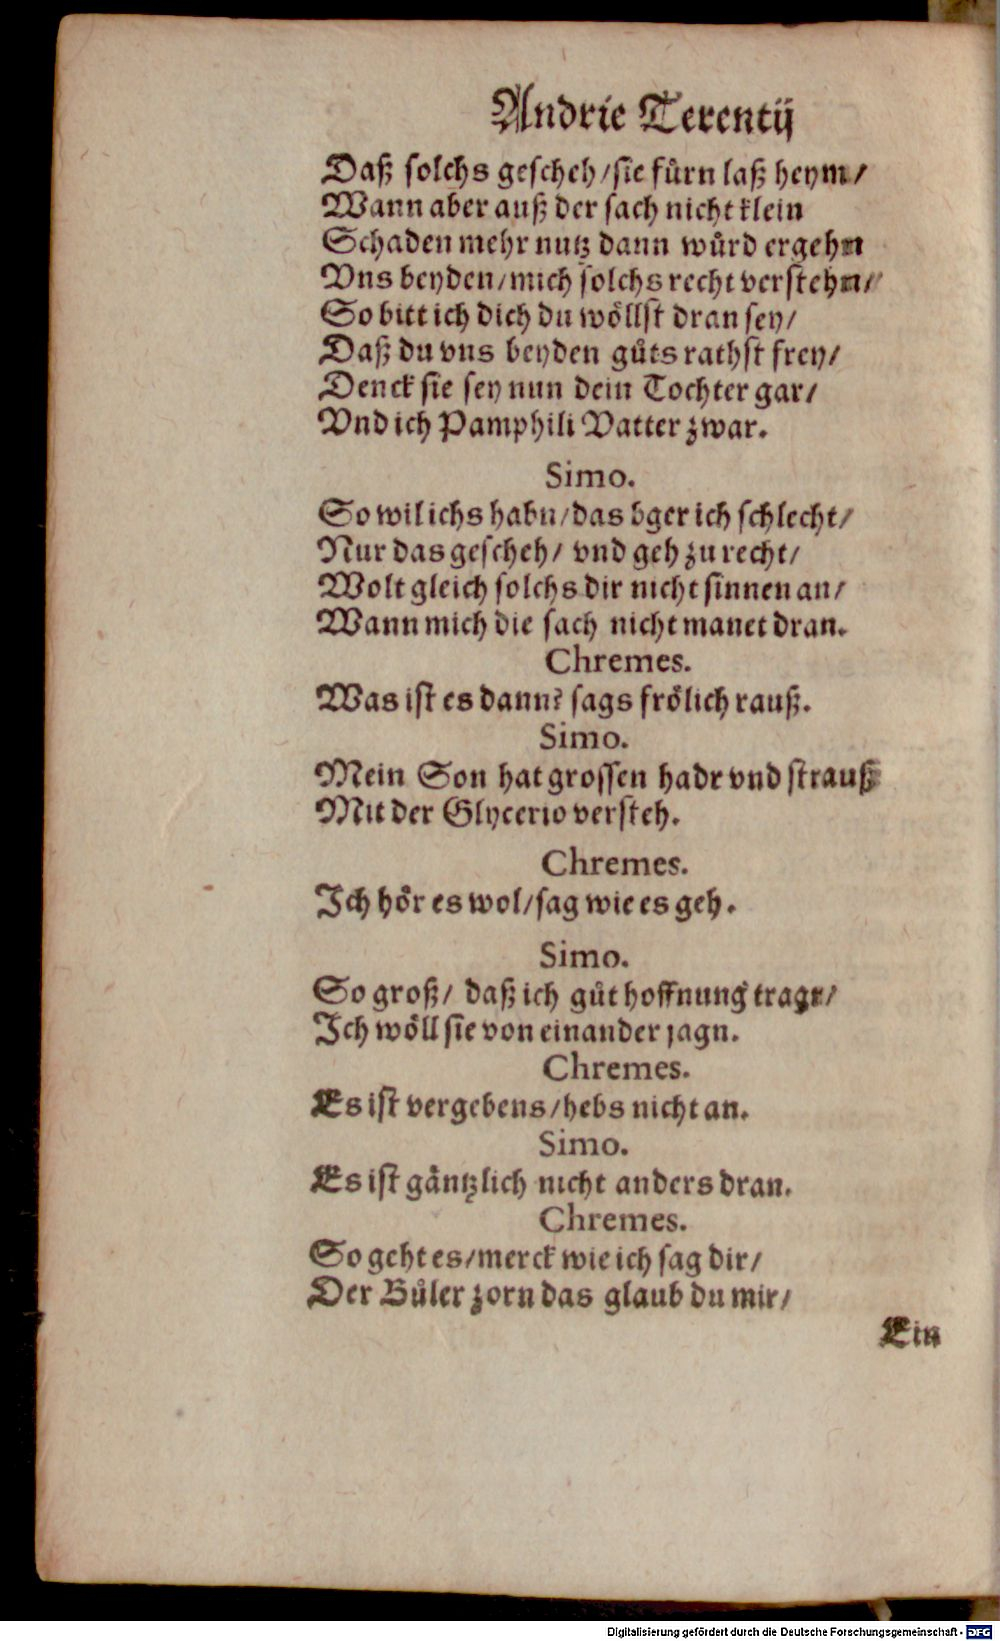 Andrie Terentij
Daß solchs gescheh/sie fuͤrn laß heym/
Wann aber auß der sach nicht klein
Schaden mehr nutz dann wuͤrd ergehn
Vns beyden/mich solchs recht verstehn/
So bitt ich dich du woͤllst dran sey/
Daß du vns beyden guͤts rathst frey/
Denck sie sey nun dein Tochter gar/
Vnd ich Pamphili Vatter zwar.
Simo.
So wil ichs habn/das bger ich schlecht/
Nur das gescheh/ vnd geh zu recht/
Wolt gleich solchs dir nicht sinnen an/
Wann mich die sach nicht manet dran.
Chremes.
Was ist es dann? sags froͤlich rauß.
Simo.
Mein Son hat grossen hadr vnd strauß
Mit der Glycerio versteh.
Chremes.
Ich hoͤr es wol/sag wie es geh.
Simo.
So groß/ daß ich guͤt hoffnung trage/
Ich woͤll sie von einander jagn.
Chremes.
Es ist vergebens/hebs nicht an.
Simo.
Es ist gaͤntzlich nicht anders dran.
Chremes.
So geht es/merck wie ich sag dir/
Der Buͤler zorn das glaub du mir/
Ein
Digitalisierung gefördert durch die Deutsche Forschungsgemeinschaft - DFG